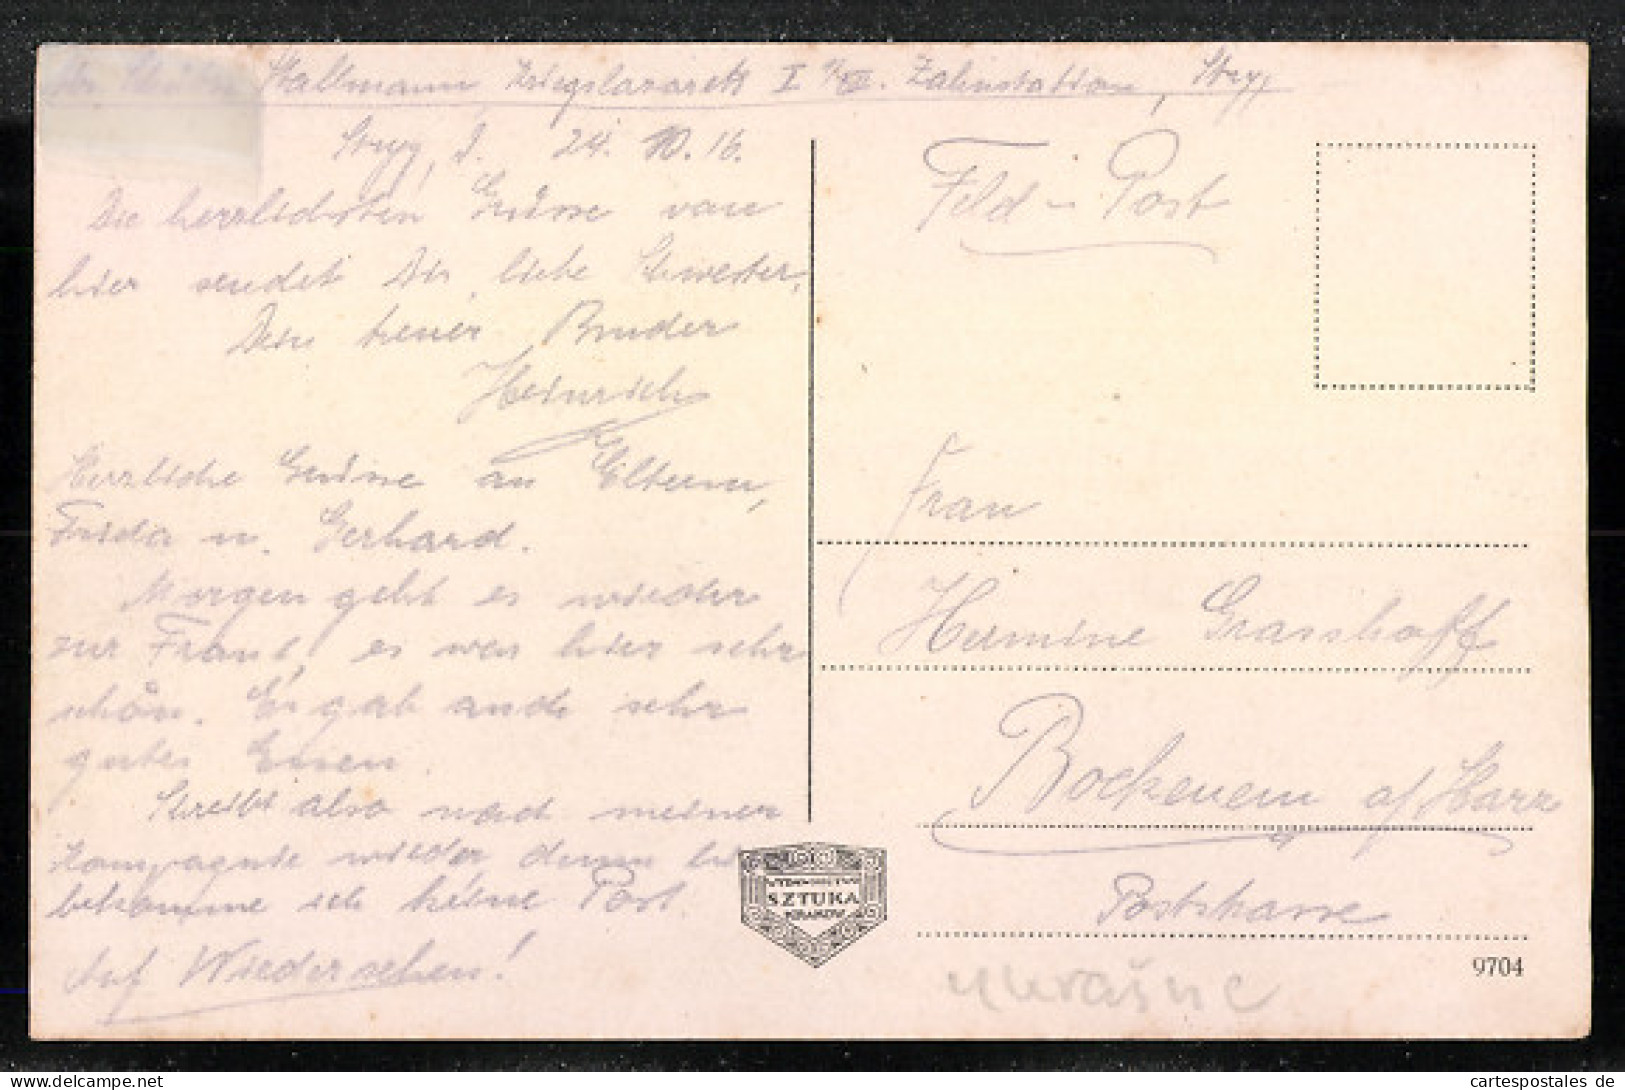 Stallmann Kriegslazarett I Zahnstation, Stryj
Stryj, d. 24. 10. 16.
Die herzlichsten Grüsse von
hier sendet Dir, liebe Schwester,
Dein treuer Bruder
Heinrich
Herzliche Grüsse an Eltern,
Frida u. Gerhard.
Morgen geht es wieder
zur Front, es war hier sehr
schön. Es gab auch sehr
gutes Essen.
Schreibt also nach meiner
Kompagnie wieder denn hier
bekomme ich keine Post.
Auf Wiedersehen!
Feld-Post
Frau
Hermine Grasshoff
Bockenem a/Harz
Poststrasse
WYDAWNICTWO
SZTUKA
KRAKÓW
9704
Ukraine
www.delcampe.net
cartespostales de